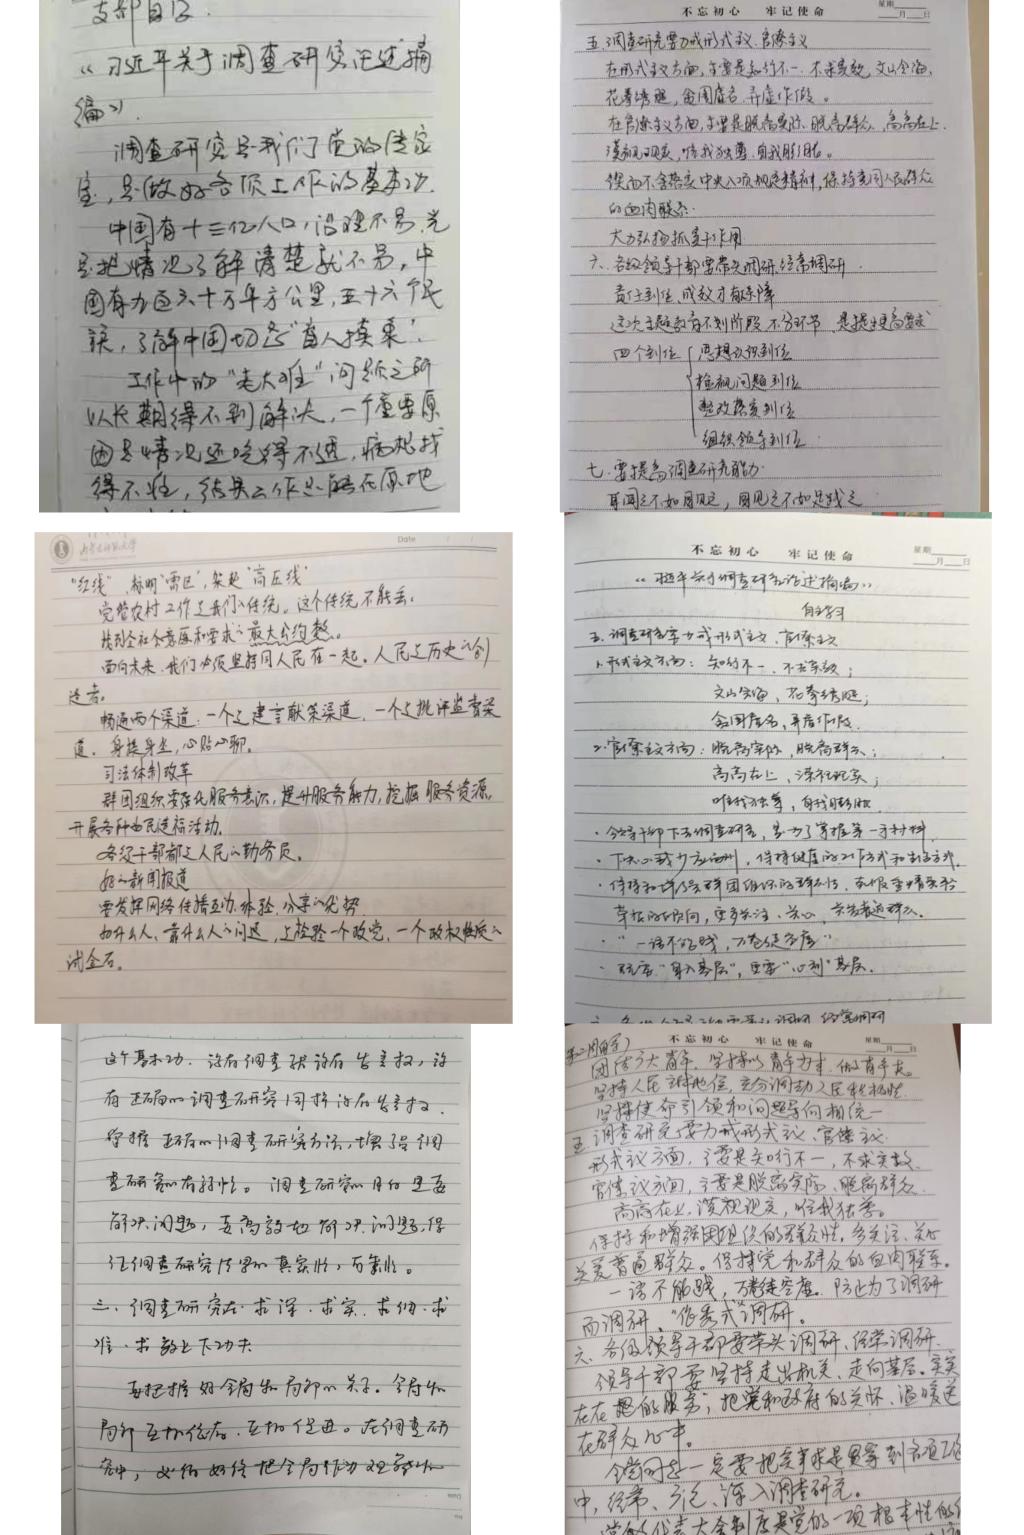 支部自己
《习近平关于调查研究论述摘
编》.
调查研究是我们党的传家
宝，是做好各项工作的基本功.
中国有十三亿人口，治理不易，光
是把情况了解清楚就不易，中
国有九百六十万平方公里，五十六个民
族，了解中国切忌"盲人摸象".
工作中的"老大难"问题之所
以长期得不到解决，一个重要原
因是情况还吃得不透，病根找
得不准，结果工作只能在原地
不忘初心 牢记使命
星期
月 日
五、调查研究要力戒形式主义、官僚主义
在形式主义方面，主要是知行不一、不求实效，文山会海，
花拳绣腿，贪图虚名、弄虚作假。
在官僚主义方面，主要是脱离实际、脱离群众、高高在上、
漠视现实，唯我独尊、自我膨胀。
锲而不舍落实中央八项规定精神，保持党同人民群众
的血肉联系.
大力弘扬抓实干作用
六、各级领导干部要带头调研、经常调研
责任到位，成效才有保障
这次主题教育不划阶段、不分环节，是提出更高要求
四个到位 思想认识到位
检视问题到位
整改落实到位
组织领导到位
七、要提高调查研究能力
耳闻之不如目见之，目见之不如足践之
Date
"红线"，标明"雷区"，架起"高压线"
党管农村工作是我们的传统。这个传统不能丢。
找到全社会意愿和要求的最大公约数。
面向未来，我们必须坚持同人民在一起。人民是历史的创
造者。
畅通两个渠道：一个是建言献策渠道，一个是批评监督渠
道。身挨身坐，心贴心聊。
司法体制改革
群团组织要强化服务意识，提升服务能力，挖掘服务资源，
开展各种为民造福活动。
各级干部都是人民的勤务员。
好的新闻报道
要发挥网络传播互动、体验、分享的优势
为什么人、靠什么人的问题，是检验一个政党、一个政权性质的
试金石。
不忘初心 牢记使命
星期
月 日
自主学习
五、调查研究要力戒形式主义、官僚主义
1. 形式主义方面：知行不一、不求实效；
文山会海，花拳绣腿；
贪图虚名、弄虚作假.
2. 官僚主义方面：脱离实际，脱离群众；
高高在上，漠视现实；
唯我独尊，自我膨胀
·领导干部下去调查研究，是为了掌握第一手材料
·保持和增强党群团组织的群众性
更多关注、关心、关爱普通群众.
·"一语不能践，万卷徒空虚"
·既要"身入基层"，更要"心到"基层.
这个基本功. 没有调查就没有发言权，没
有正确的调查研究同样没有发言权.
掌握正确的调查研究方法，增强调
查研究的有效性。调查研究的目的是要
解决问题，要高效地解决问题，保
证调查研究结果的真实性，可靠性。
三、调查研究在求深、求实、求细、求
准、求效上下功夫
要把握好全局和局部的关系。全局和
局部互相依存、互相促进。在调查研
究中，必须始终把全局作为观察和
不忘初心 牢记使命
星期
月 日
团结广大青年，坚持以青年为本，做青年友.
坚持人民主体地位，充分调动人民积极性.
坚持使命引领和问题导向相统一
五、调查研究要力戒形式主义、官僚主义.
形式主义方面，主要是知行不一，不求实效.
官僚主义方面，主要是脱离实际，脱离群众.
高高在上，漠视现实，唯我独尊。
保持和增强团组织的群众性，多关注、关心
关爱普通群众。保持党和群众的血肉联系。
一语不能践，万卷徒空虚。防止为了调研
而调研，"作秀式"调研。
六、各级领导干部要带头调研、经常调研.
领导干部要坚持走出机关、走向基层。实实
在在的服务；把党和政府的关怀、温暖送
在群众心中。
全党同志一定要把实事求是贯穿到各项工作
中，经常、广泛、深入调查研究。
党的代表大会制度是党的一项根本性的